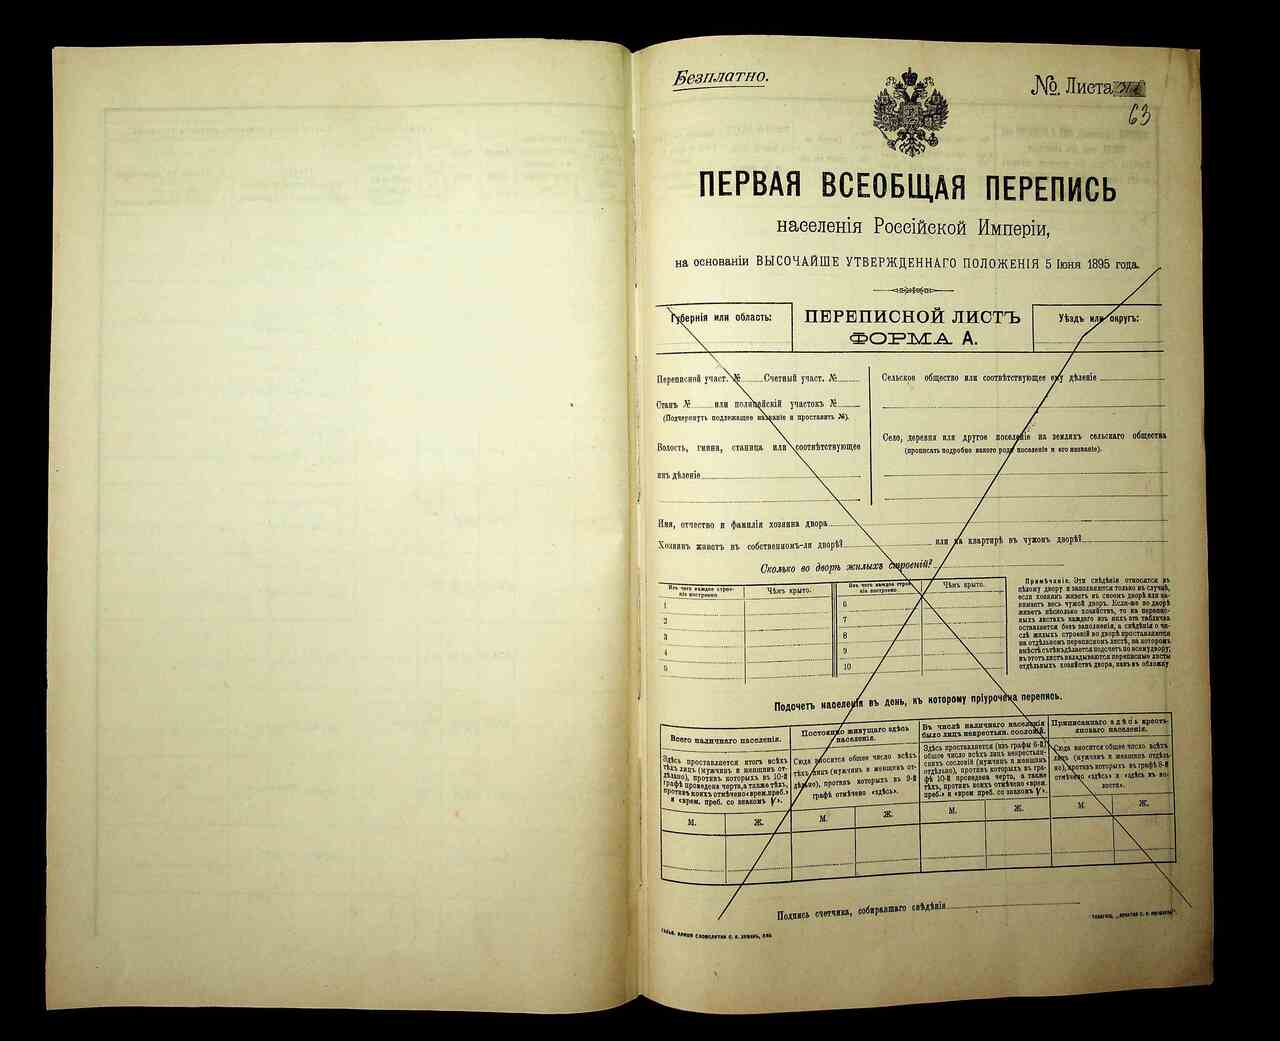 Безплатно.
№. Листа
63
ПЕРВАЯ ВСЕОБЩАЯ ПЕРЕПИСЬ
населенія Россійской Имперіи,
на основаніи ВЫСОЧАЙШЕ УТВЕРЖДЕННАГО ПОЛОЖЕНІЯ 5 Іюня 1895 года.
Губернія или область:
ПЕРЕПИСНОЙ ЛИСТЪ
ФОРМА А.
Уѣздъ или округъ:
Переписной участ. № Счетный участ. №
Станъ № или полицейскій участокъ №
(Подчеркнуть подлежащее названіе и проставить №).
Волость, гмина, станица или соотвѣтствующее
имъ дѣленіе
Сельское общество или соотвѣтствующее ему дѣленіе
Село, деревня или другое поселеніе на земляхъ сельскаго общества
(прописать подробно какого рода поселеніе и его названіе).
Имя, отчество и фамилія хозяина двора
Хозяинъ живетъ въ собственномъ-ли дворѣ? или на квартирѣ въ чужомъ дворѣ?
Сколько во дворѣ жилыхъ строеній?
Изъ чего каждое строе-
ніе построено
Чѣмъ крыто.
Изъ чего каждое строе-
ніе построено
Чѣмъ крыто.
1
2
3
4
5
6
7
8
9
10
Примѣчаніе. Эти свѣдѣнія относятся къ
цѣлому двору и заполняются только въ случаѣ,
если хозяинъ живетъ въ своемъ дворѣ или за-
нимаетъ весь чужой дворъ. Если-же во дворѣ
живетъ нѣсколько хозяйствъ, то на перепис-
ныхъ листахъ каждаго изъ нихъ эта табличка
оставляется безъ заполненія, а свѣдѣнія о чи-
слѣ жилыхъ строеній во дворѣ проставляются
на отдѣльномъ переписномъ листѣ, на которомъ
вмѣстѣ съ тѣмъ дѣлается подсчетъ по всему двору;
въ этотъ листъ вкладываются переписные листы
отдѣльныхъ хозяйствъ двора, какъ въ обложку
Подсчетъ населенія въ день, къ которому пріурочена перепись.
Всего наличнаго населенія.
Здѣсь проставляется итогъ всѣхъ
тѣхъ лицъ (мужчинъ и женщинъ от-
дѣльно), противъ которыхъ въ 10-й
графѣ проведена черта, а также тѣхъ,
противъ коихъ отмѣчено «врем. преб.»
и «врем. преб. со знакомъ V».
Постоянно живущаго здѣсь
населенія.
Сюда вносится общее число всѣхъ
тѣхъ лицъ (мужчинъ и женщинъ от-
дѣльно), противъ которыхъ въ 9-й
графѣ отмѣчено «здѣсь».
Въ числѣ наличнаго населенія
было лицъ некрестьян. сословій.
Здѣсь проставляется (изъ графы 6-й)
общее число всѣхъ лицъ некрестьян-
скихъ сословій (мужчинъ и женщинъ
отдѣльно), противъ которыхъ въ гра-
фѣ 10-й проведена черта, а также
тѣхъ, противъ коихъ отмѣчено «врем.
преб.» и «врем. преб. со знакомъ V».
Приписаннаго здѣсь кресть-
янскаго населенія.
Сюда вносится общее число всѣхъ
лицъ (мужчинъ и женщинъ отдѣль-
но), противъ которыхъ въ графѣ 8-й
отмѣчено «здѣсь» и «здѣсь въ во-
лости».
М. Ж. М. Ж. М. Ж. М. Ж.
Подпись счетчика, собиравшаго свѣдѣнія